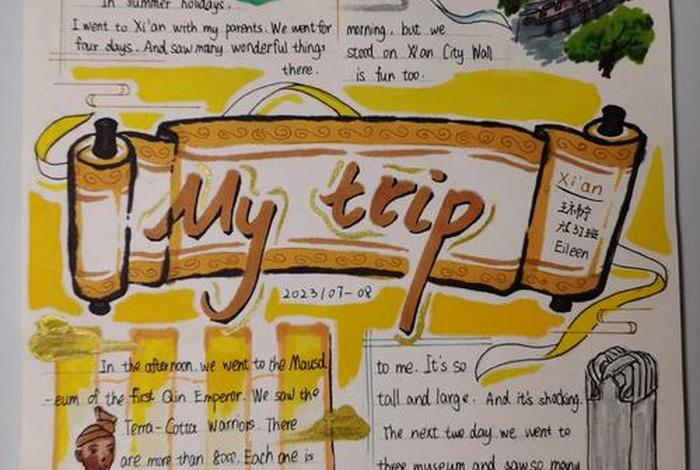 In summer holidays.
I went to Xi'an with my parents. We went for
four days. And saw many wonderful things
there.
morning, but we
stood on Xi'an City Wall
is fun too.
My trip
Xi'an
六3班
Eileen
2023/07-08
In the afternoon. we went to the Mausol
-eum of the first Qin Emperor. We saw the
Terra-Cotta Warriors. There
are more than 8000. Each one is
to me. It's so
tall and large. And it's shocking.
The next two day we went to
three museum and saw so many